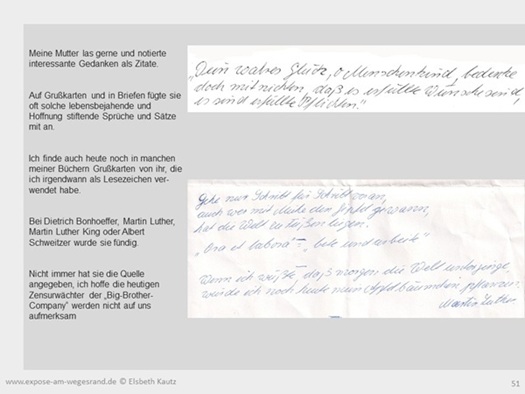 Meine Mutter las gerne und notierte
interessante Gedanken als Zitate.
Auf Grußkarten und in Briefen fügte sie
oft solche lebensbejahende und
Hoffnung stiftende Sprüche und Sätze
mit an.
Ich finde auch heute noch in manchen
meiner Büchern Grußkarten von ihr, die
ich irgendwann als Lesezeichen ver-
wendet habe.
Bei Dietrich Bonhoeffer, Martin Luther,
Martin Luther King oder Albert
Schweitzer wurde sie fündig.
Nicht immer hat sie die Quelle
angegeben, ich hoffe die heutigen
Zensurwächter der „Big-Brother-
Company" werden nicht auf uns
aufmerksam
„Dein wahres Glück, o Menschenkind, bedenke
doch mit nichten, daß es erfüllte Wünsche sind,
es sind erfüllte Pflichten."
Gehe nur Schritt für Schritt voran,
auch wer mit Mühe den Gipfel gewann,
hat die Welt zu Füßen liegen.
„Ora et labora" – bete und arbeite"
Wenn ich wüßte, daß morgen die Welt unterginge,
würde ich noch heute mein Apfelbäumchen pflanzen.
Martin Luther
www.expose-am-wegesrand.de © Elsbeth Kautz
51